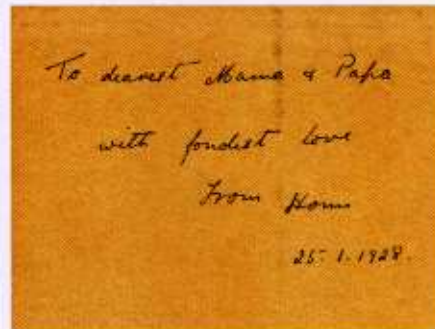 To dearest Mama & Papa
with fondest love
From Homi
25.1.1928.